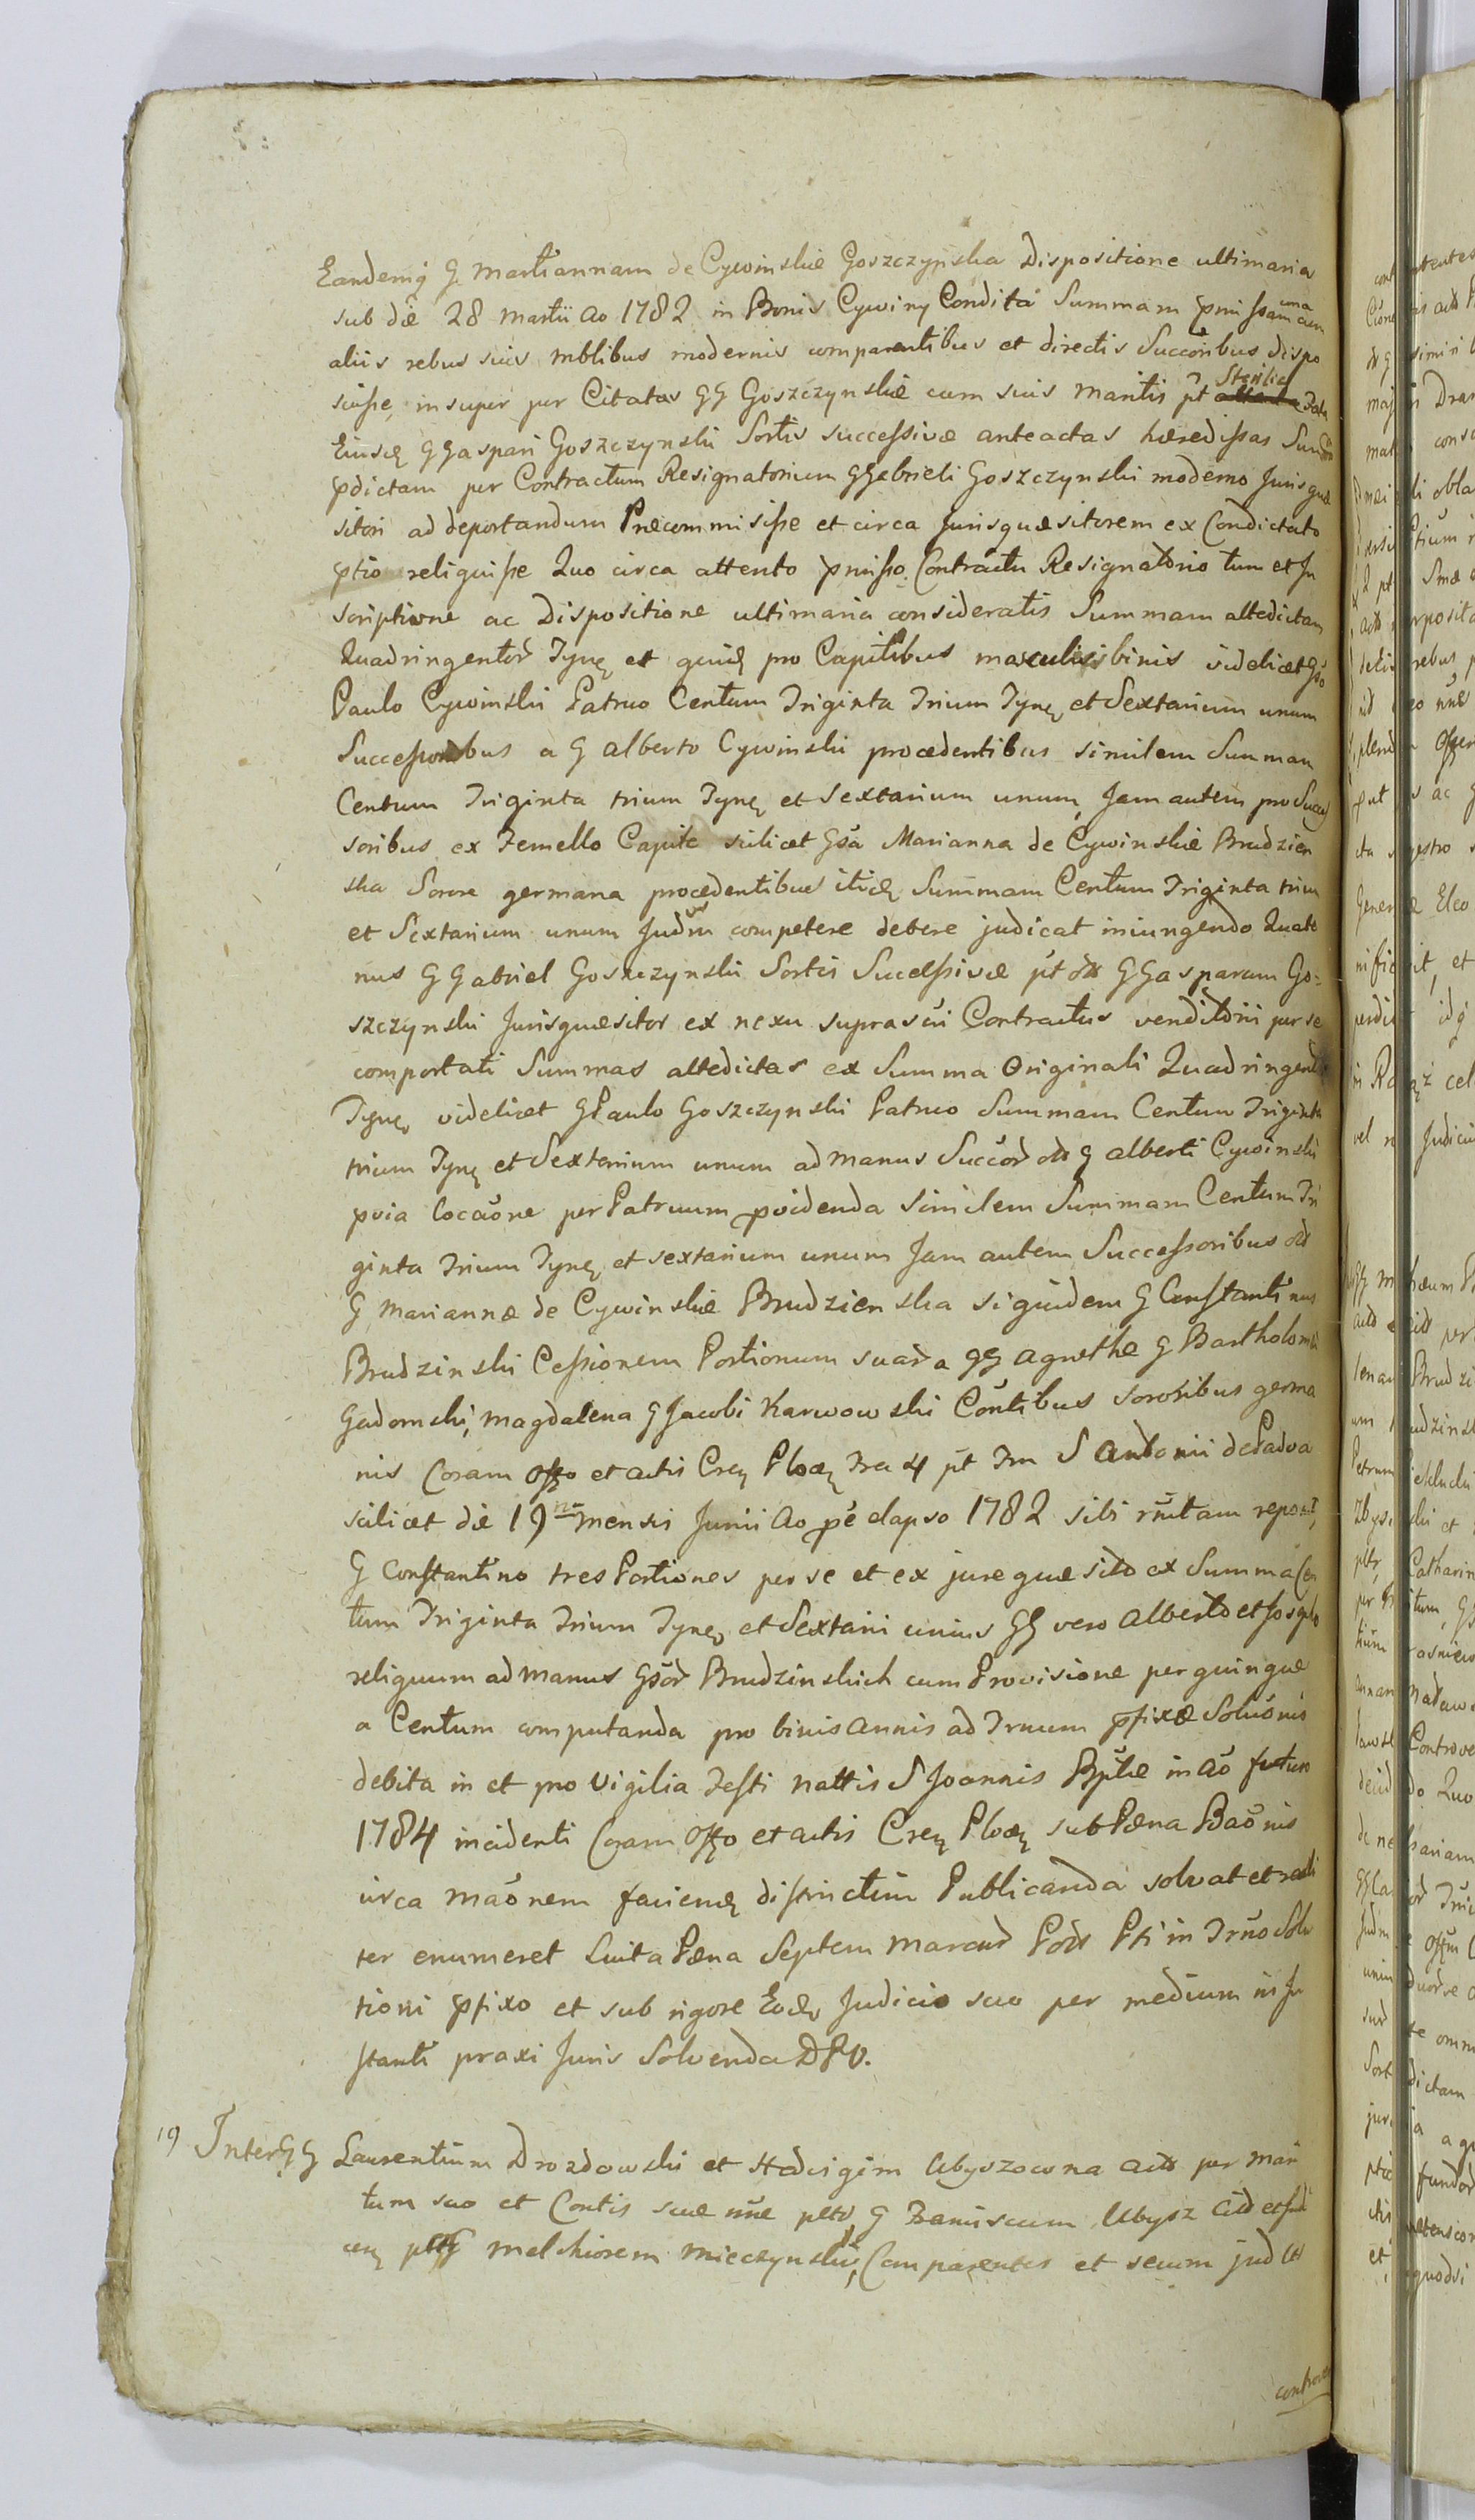 Eandemq G Martiannam de Cywinskie Goszczynska Dispositione ultimaria
sub die 28 Martii Ao 1782 in Bonis Cywiny Condita Summam pmissam una cum
aliis rebus suis mblibus modernis comparentibus et directis Succoribus dispo
suisse, insuper per Citatas GG Goszczynskie cum suis Maritis pt Sterilis Fata
Eiusd G Gaspari Goszczynski Sortis successivæ anteactas hæredissas Summ
pdictam per Contractum Resignatorium G Gabrieli Goszczynski moderno Jurisquæ
sitori ad deportandum Præcommisisse et circa Jurisquæsitorem ex Condictato
ptio reliquisse Quo circa attento pmisso Contractu Resignatorio tum et In
scriptione ac Dispositione ultimaria consideratis Summam altedictam
Quadringentor Tyne et quid pro Capitibus masculis binis videlicet Gso
Paulo Cywinski Patruo Centum Triginta Trium Tyne et Sextarium unum
Successoribus a G Alberto Cywinski procedentibus similem Summam
Centum Triginta trium Tyne et Sextarium unum, Jam autem pro Succes
soribus ex Femello Capite scilicet Gsa Marianna de Cywinskie Brudzien
ska Sorore germana procedentibus itid Summam Centum Triginta trium
et Sextarium unum Judm competere debere judicat iniungendo Quate
nus G Gabriel Goszczynski Sortis Successivæ pt olt G Gasparum Go-
szczynski Jurisquæsitor ex nexu suprascri Contractus venditorii per se
comportati Summas altedictas ex Summa Originali Quadringent
Tyne videlicet G Paulo Goszczynski Patruo Summam Centum Triginta
trium Tyne et Sextarium unum ad manus Succor olt G Alberti Cywinski
pvia locaone per Patruum pvidenda similem Summam Centum Tri
ginta Trium Tyne et sextarium unum Jam autem Successoribus olt
G Mariannæ de Cywinskie Brudzienska siquidem G Constantinus
Brudzinski Cessionem Portionum suar a GG Agnethe G Bartholomei
Gadomski, Magdalena G Jacobi Karwowski Contibus Sororibus germa
nis Coram Offo et actis Cren Ploen Fra 4 pt Fm S Antonii de Padva
scilicet die 19na mensis Junii Ao pe elapso 1782 sibi rntam repor
G Constantino tres Portiones per se et ex jure quæsito ex Summa Cen
tum Triginta Trium Tyne et Sextarii unius GG vero Alberto et Josepho
reliquum ad manus Gsor Brudzinskich cum Provisione per quinque
a Centum computanda pro binis annis ad Trnum pfixæ Soluonis
debita in et pro Vigilia Festi Nattis S Joannis Bptæ in Ao futuro
1784 incidenti Coram Offo et actis Cren Ploen sub Pæna Baonis
circa Maonem faciend distinctim Publicanda solvat et reali
ter enumeret Luita Pæna Septem Marcar Pols Pti in Trno Solu
tioni pfixo et sub rigore Eod Judicio suo per medium in In
stanti praxi Juris Solvenda DPV.
19 Inter GG Laurentium Drozdowski et Hedvigim Ubyszowna act per Mari
tum suo et Contis suæ nne pltr G Franciscum Ubysz Cid et Judi
cem Melchiorem Mieczynski, Comparentes et secum jud
controver